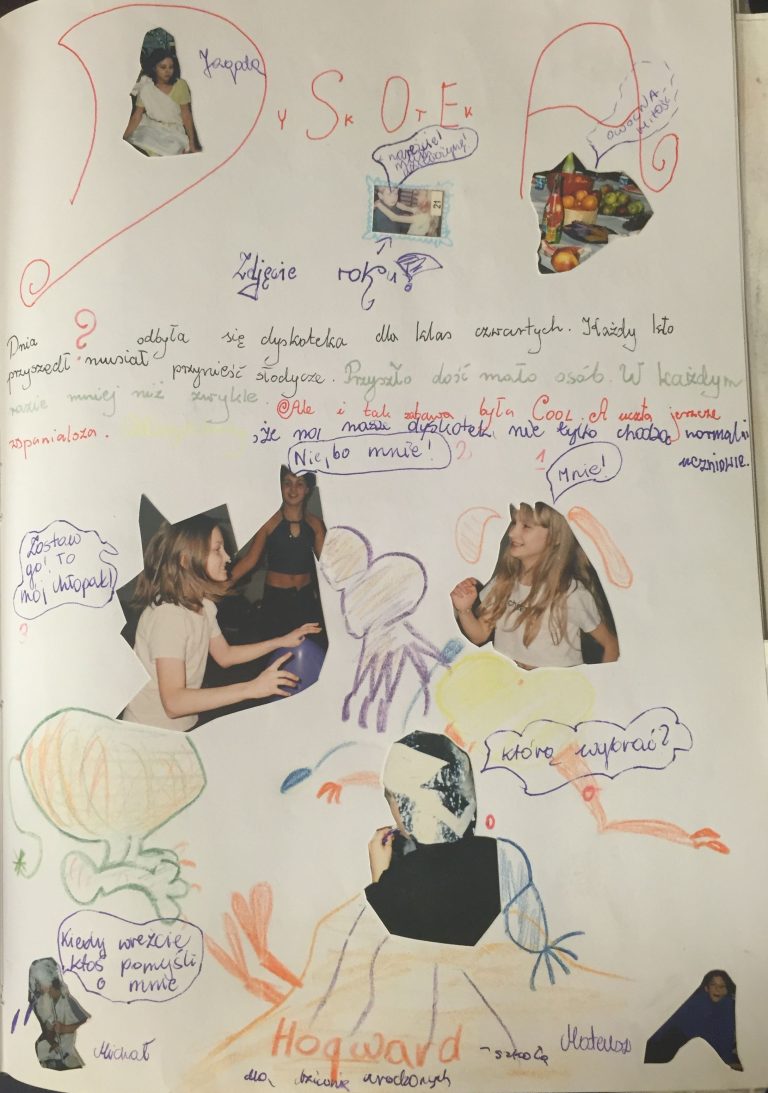 Jagoda
DySkOtEkA
OWOCNA
MIŁOŚĆ
nareszcie!
21
Zdjęcie roku!
Dnia ? odbyła się dyskoteka dla klas czwartych. Każdy kto
przyszedł musiał przynieść słodycze. Przyszło dość mało osób. W każdym
razie mniej niż zwykle. Ale i tak zabawa była COOL. A uczta jeszcze
wspanialsza. , że na nasze dyskoteki nie tylko chodzą normalni
uczniowie.
Nie, bo mnie! 2
1 Mnie!
Zostaw
go! To
mój chłopak!
3
którą wybrać?
Kiedy wreżcie
ktoś pomyśli
o mnie
Michał
Hogward - szkoła
Mateusz
dla urodzonych